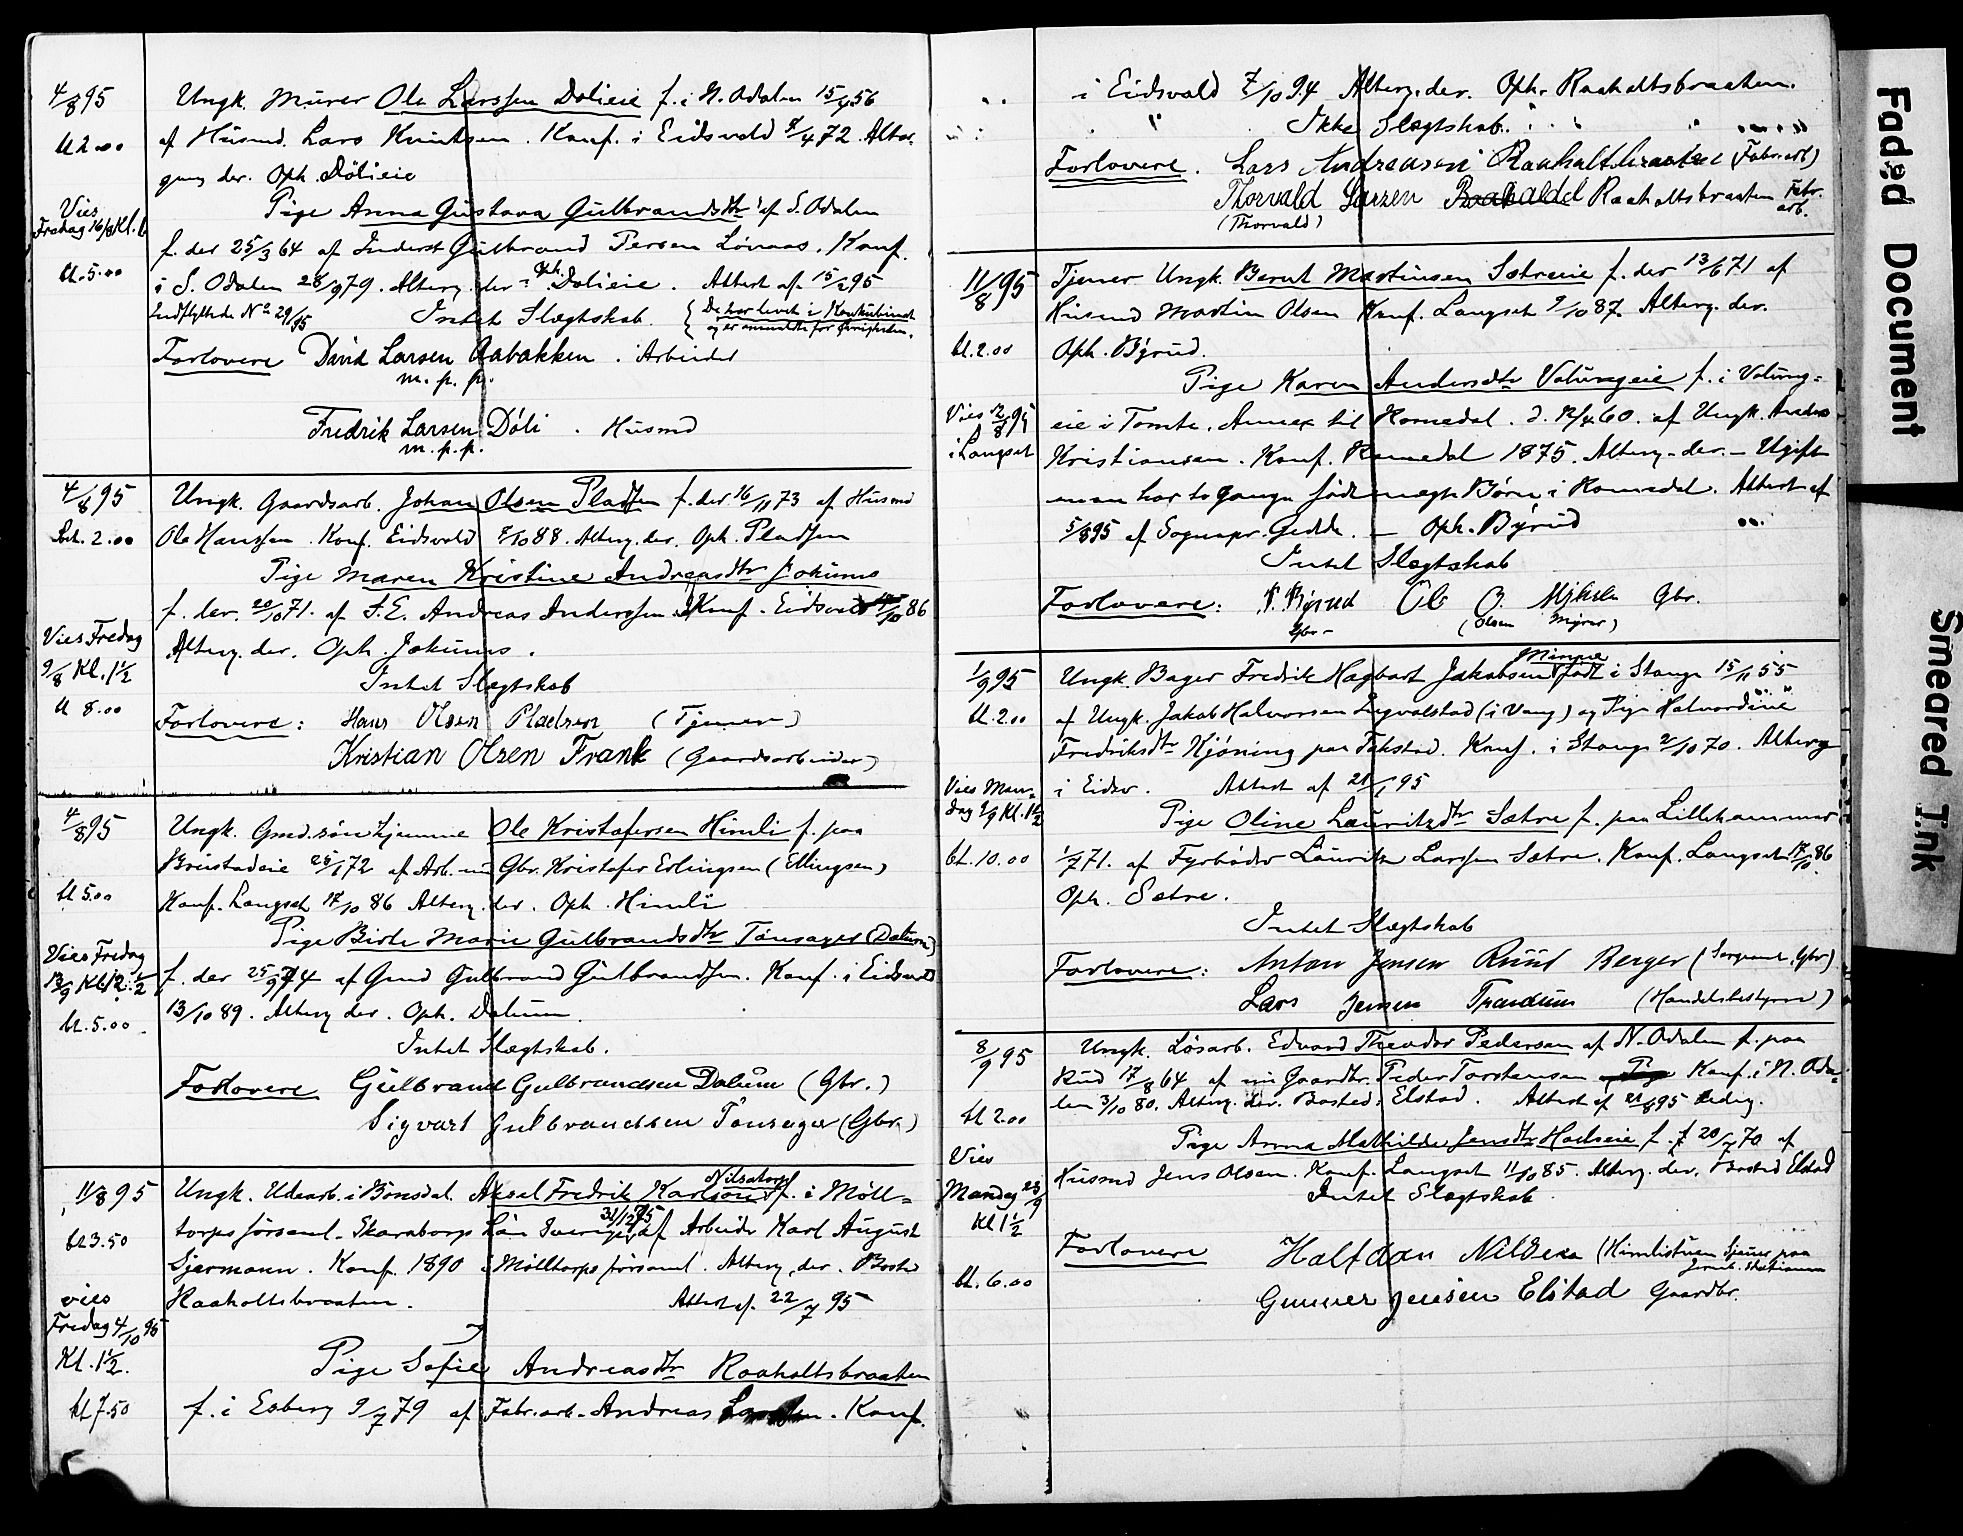 4/8 95 Ungk. Murer Ole Larssen Dolieie f. i N. Odalen 15/4 56
bt 2.00 af Husmd. Lars Knutsen. Konf. i Eidsvold 7/4 72. Alter-
gang der. Oph. Dölieie
Vies Pige Anna Gustava Gulbrandsdtr af S. Odalen
Fredag 16/8 Kl. 6
f. der 25/3 64 af Inderst Gulbrand Persen Lönaas. Konf.
bt. 5.00 i S. Odalen 28/9 79. Alterg. der – Oph. Dolieie. Attest af 15/2 95
Indflyttede No 29/95 Intet Slægtskab. { De har levet i Konkubinat
og er anmeldte for Øvrigheden.
Forlovere David Larsen Aabakken. Arbeider
m. p. p.
Fredrik Larsen Döli. Husmd
m. p. p.
4/8 95 Ungk. Gaardsarb. Johan Olsen Pladsen f. der 16/11 73 af Husmd
Bet. 2.00 Ole Hanssen. Konf. Eidsvold 7/10 88. Alterg. der. Oph. Pladsen
Pige Maren Kristine Andreasdtr Jokums
f. der. 20/10 71. af F.E. Andreas Anderssen. Konf. Eidsvold /10 86
Vies Fredag Alterg. der. Oph. Jokums.
9/8 Kl. 1 1/2
Intet Slægtskab
bt 8.00 Forlovere: Hans Olsen Pladsen (Tjener)
Kristian Olsen Frank (Gaardsarbeider)
4/8 95 Ungk. Gmd. sön hjemme Ole Kristofersen Himli f. paa
Brustadeie 25/1 72 af Arb. nu Gbr. Kristofer Erlingsen (Ellingsen)
bt 5.00 Konf. Langset 17/10 86 Alterg. der. Oph. Himli
Pige Birte Marie Gulbrandsdtr Tönsager (Dalum)
Vies Fredag
13/9 Kl. 12 1/2 f. der 25/9 74 af Gmd Gulbrand Gulbrandsen. Konf. i Eidsvold
bt. 5.00 13/10 89. Alterg der. Oph. Dalum.
Intet Slægtskab.
Forlovere Gulbrand Gulbrandsen Dalum (Gbr.)
Sigvart Gulbrandsen Tönsager (Gbr.)
11/8 95 Ungk. Udearb. i Bönsdal. Aksel Fredrik Karlson Nilsatorp f. i Möll-
bt 3.50 torps församl. Skaraborgs Län Sverige 31/12 75 af Arbeider Karl August
Stjermann. Konf. 1890 i Mölltorps församl. Alterg. der. Bosted
vies Raaholtsbraaten. Attest af. 22/7 95
Fredag 4/10 95
Kl. 1 1/2. Pige Sofie Andreasdtr Raaholtsbraaten
bt 7.50 f. i Esberg 9/7 79 af Fabr.arb. Andreas Larsen. Konf.
i Eidsvold 7/10 94 Alterg. der. Oph. Raaholtsbraaten.
" Ikke Slægtskab.
Forlovere. Lars Andreasen Raaholtbraaten (Fabr.arb)
Thorvald Larzen Raahaldel Raaholtsbraaten Fabr.
arb.
(Thorvald)
11/8 95 Tjener Ungk. Bernt Martinsen Sætreeie f. der 13/6 71 af
Husmd Martin Olsen Konf. Langset 9/10 87. Alterg. der.
bt. 2.00 Oph. Byrud.
Pige Karen Andersdtr Volungeie f. i Volung-
Vies 12/8 95 eie i Tomte. Annex til Romedal. d. 12/4 60. af Ungk. Anders
i Langset Kristiansen. Konf. Romedal 1875. Alterg. der. – Ugift
men har to gange födt uægte Börn i Romedal. Attest af
5/8 95 af Sognepr. Gedde. – Oph. Byrud
Intet Slægtskab
Forlovere: P. Byrud Ole O. Myhrer Gbr.
Gbr – (Olsen Myrer)
1/9 95 Ungk. Bager Fredrik Hagbart Jakobsen Minne födt i Stange 15/11 55
bt. 2.00 af Ungk. Jakob Halvorsen Lygvalstad (i Vang) og Pige Halvordine
Fredriksdtr Kjöning paa Tokstad. Konf. i Stange 2/10 70. Alterg
Vies Man- i Eidsv. Attest af 21/1 95
dag 2/9 Kl. 1 1/2 Pige Oline Lauritsdtr Sætre f. paa Lillehammer
bt. 10.00 1/7 71. af Fyrböder Laurits Larssen Sætre. Konf. Langset 17/10 86
Oph. Sætre.
Intet Slægtskab
Forlovere: Anton Jensen Ruud Berger (Sergeant. Gbr)
Lars Jensen Trandum (Handelsbestyrer)
8/9 95 Ungk. Lösarb. Edvard Theodor Pedersen af N. Odalen f. paa
Rud 17/8 64 af nu Gaardbr. Peder Torstensen Konf. i N. Oda-
bt 2.00 len 3/10 80. Alterg. der. Bosted: Elstad. Attest af 21/8 95 ledig.
Vies Pige Anna Mathilde Jensdtr Hoelseie f. 20/7 70 af
Husmd Jens Olsen. Konf. Langset 11/10 85. Alterg. der. Bosted Elstad
Mandag 23/9 Intet Slægtskab
Kl 1 1/2
Forlovere Halfdan Nilsen (Himlistuen tjener paa
Jernb. stationen
bt. 6.00 Gunner Jensen Elstad Gaardbr.
Faded Document
Smeared Ink